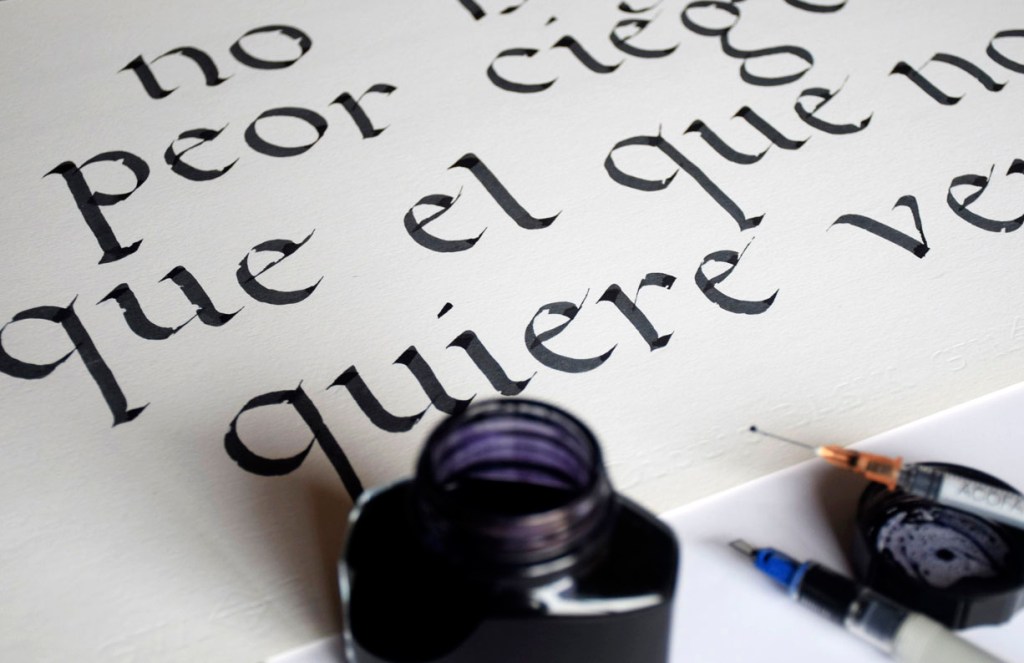 no
peor ciego
que el que no
quiere ver